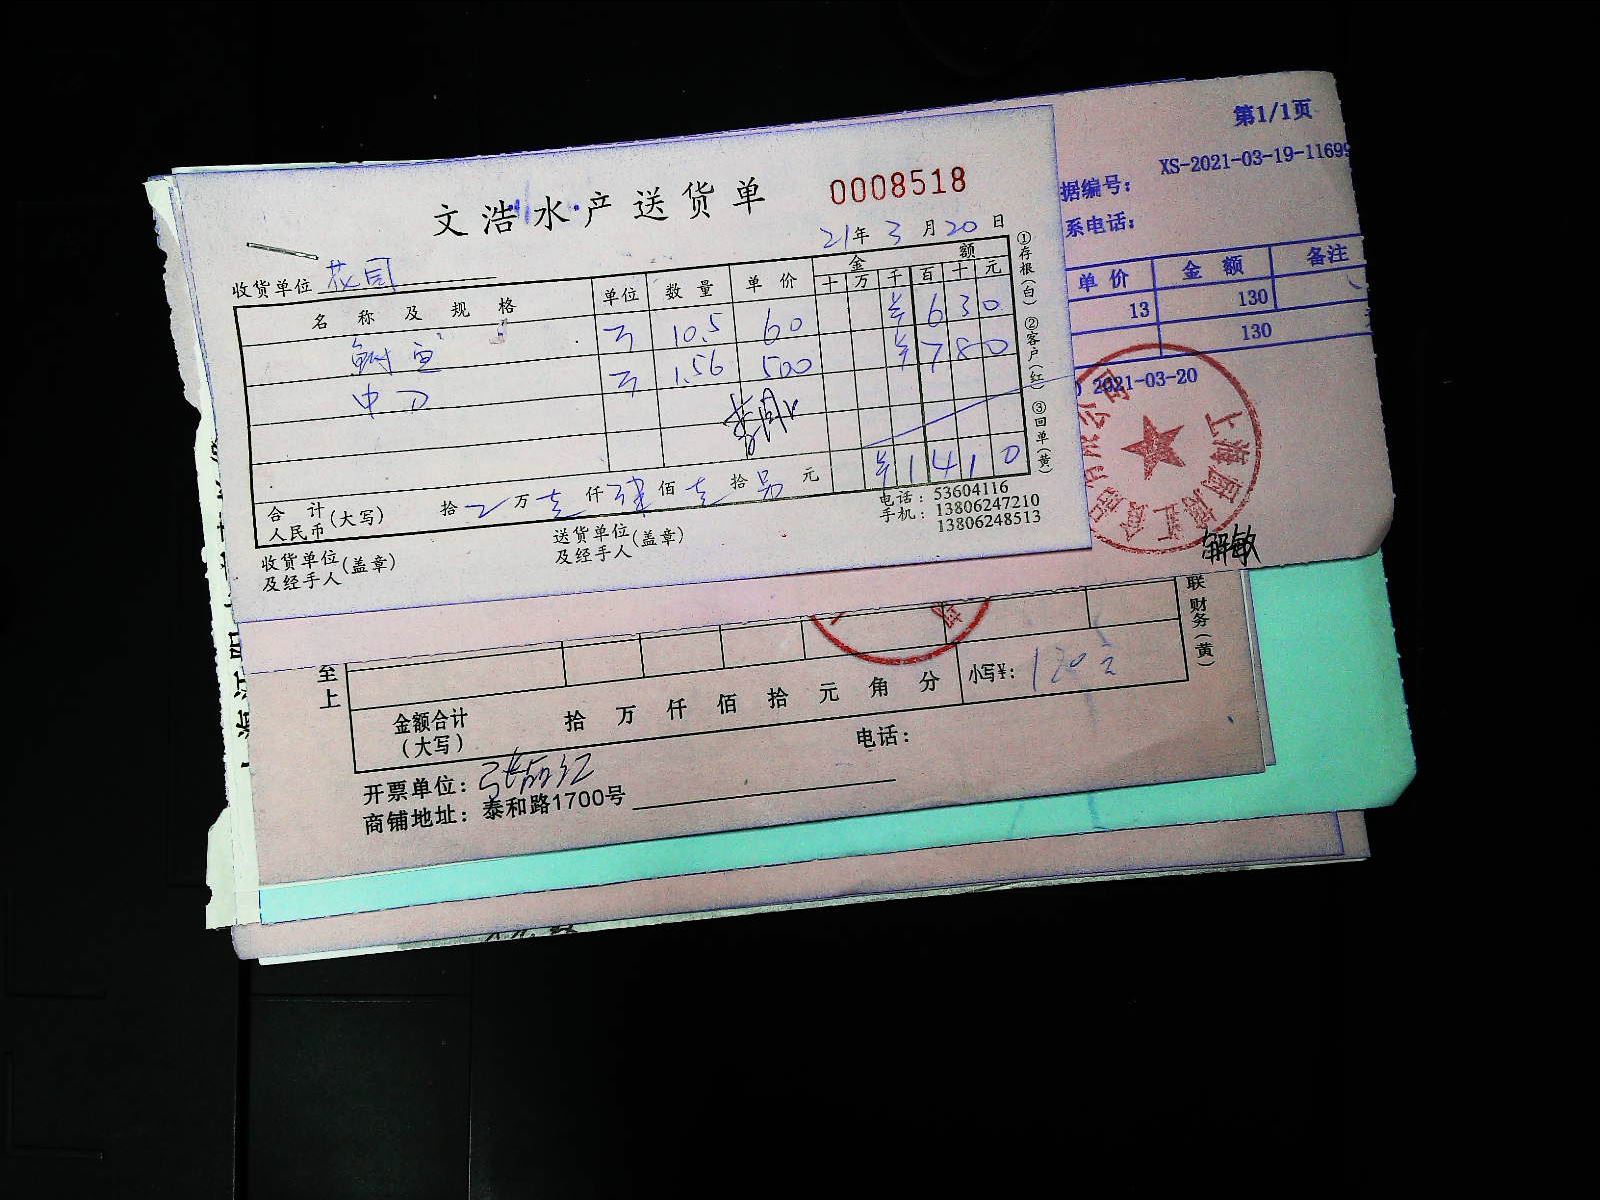 文浩水产送货单 0008518
21年3月20日
收货单位 花园
名称及规格 单位 数量 单价 金额
十 万 千 百 十 元
10.5 60 ¥630
中刀 1.56 500 ¥780
合计人民币(大写) 拾 万 壹仟 肆佰 壹拾 另元 ¥1410
电话：53604116
手机：13806247210
13806248513
收货单位及经手人(盖章) 送货单位及经手人(盖章)
①存根(白) ②客户(红) ③回单(黄)
第1/1页
据编号： XS-2021-03-19-11699
系电话：
单价 金额 备注
13 130
130
2021-03-20
解敏
联 财务(黄)
至上
金额合计(大写) 拾 万 仟 佰 拾 元 角 分 小写¥：
电话：
开票单位：
商铺地址：泰和路1700号